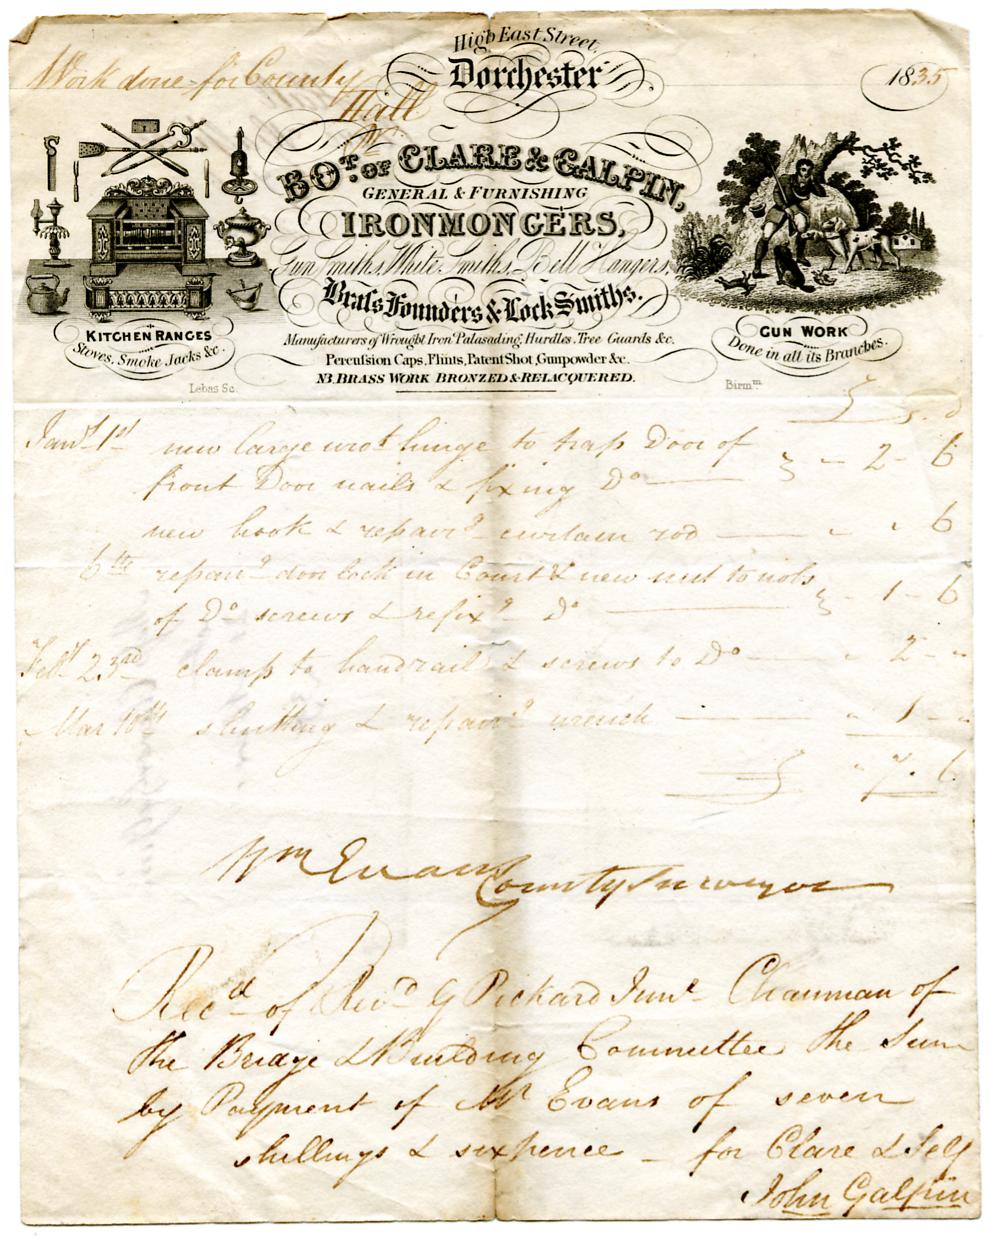 High East Street,
Dorchester
1835
Work done for County
Hall
BOT. OF CLARE & GALPIN,
GENERAL & FURNISHING
IRONMONGERS,
Gun Smiths, White Smiths, Bell Hangers,
Brass Founders & Lock Smiths.
Manufacturers of Wrought Iron Palasading, Hurdles, Tree Guards &c.
Percussion Caps, Flints, Patent Shot, Gunpowder &c.
NB. BRASS WORK BRONZED & RELACQUERED.
KITCHEN RANGES
Stoves, Smoke Jacks &c.
Lebas Sc.
GUN WORK
Done in all its Branches.
Birmm.
£ s. d
Jany 1st new large wrot hinge to trap Door of
front Door nails & fixing Do - 2 - 6
new hook & repairg curtain rod - - 6
6th repairg door lock in Court & new nut to nob
of Do screws & refixg Do - 1 - 6
Feby 23rd clamp to handrail & screws to Do - 2 -
Mar 10th shutting & repairg wrench - 1 -
£ - 7 - 6
Wm Evans County Surveyor
Recd of Revd G Pickard Junr Chairman of
the Bridge & Building Committee the Sum
by Payment of Mr Evans of seven
shillings & sixpence - for Clare & Self
John Galpin